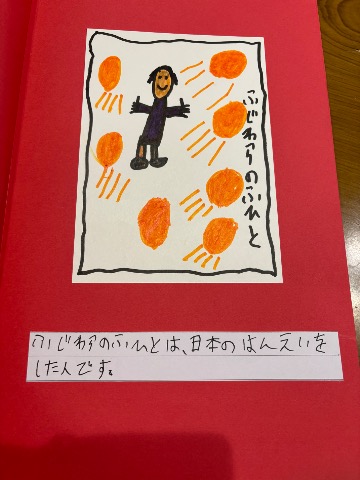 ふじわらのふひと
ふじわらのふひとは、日本のはんえいを
した人です。